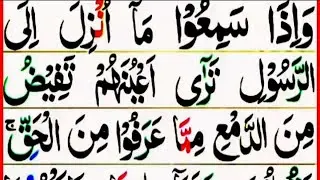 وَاِذَا سَمِعُوْا مَاۤ اُنْزِلَ اِلَى
الرَّسُوْلِ تَرٰۤى اَعْيُنَهُمْ تَفِيْضُ
مِنَ الدَّمْعِ مِمَّا عَرَفُوْا مِنَ الْحَقِّ ۚ